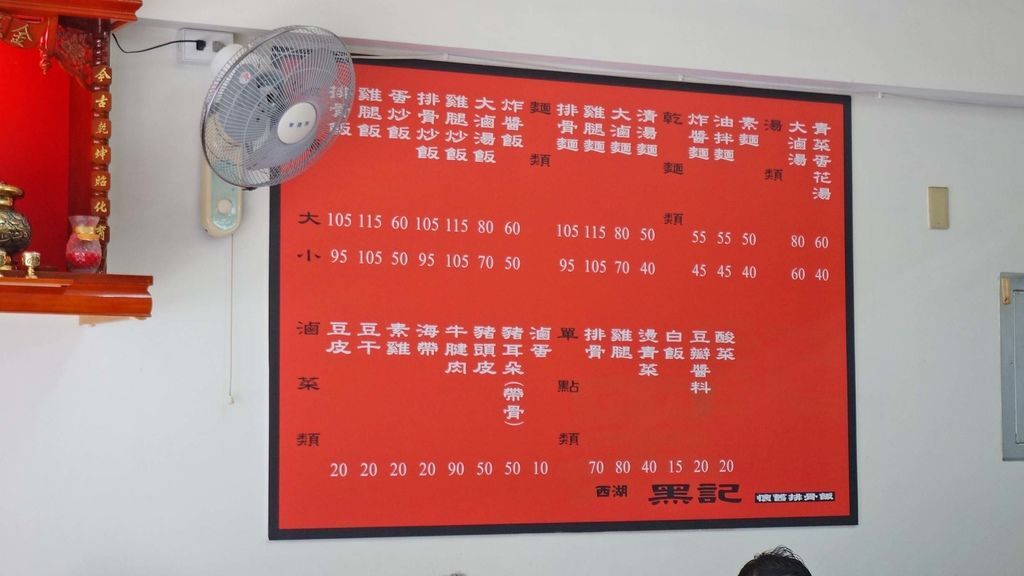 今古乾坤昭化育
排骨飯 雞腿飯 蛋炒飯 排骨炒飯 雞腿炒飯 大滷湯飯 炸醬飯 麵類 排骨麵 雞腿麵 大滷麵 清湯麵 乾麵類 炸醬麵 油拌麵 素麵 湯類 大滷湯 青菜蛋花湯
大 105 115 60 105 115 80 60 105 115 80 50 55 55 50 80 60
小 95 105 50 95 105 70 50 95 105 70 40 45 45 40 60 40
滷菜類 豆皮 豆干 素雞 海帶 牛腱肉 豬頭皮 豬耳朵(帶骨) 滷蛋 單點類 排骨 雞腿 燙青菜 白飯 豆瓣醬料 酸菜
20 20 20 20 90 50 50 10 70 80 40 15 20 20
西湖 黑記 懷舊排骨飯